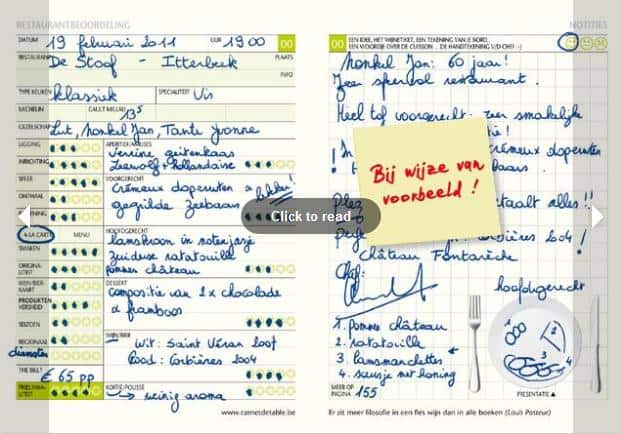 RESTAURANTBEOORDELING
DATUM 19 februari 2011 UUR 19 00 00
RESTAURANT De Stoof - Itterbeek PLAATS
INFO
TYPE KEUKEN klassiek SPECIALITEIT Vis
MICHELIN GAULT MILLAU 13,5
GEZELSCHAP Lut, nonkel Jan, Tante Yvonne
LIGGING APERITIEF/AMUSES
Verrine geitenkaas
INRICHTING Zeewolf + hollandaise
SFEER VOORGERECHT
Crémeux doperwten
ONTHAAL lekker!
gegrilde Zeebaars
A LA CARTE MENU HOOFDGERECHT
SMAKEN lamskroon in notenjasje
zuiderse ratatouille
ORIGINALITEIT pommes château
DESSERT
compositie van 2x chocolade
PRODUKTEN VERSHEID & framboos
SEIZOEN
REGIONAAL WIJN/BIER
Wit: Saint Véran 2007
diensten
Rood: Corbières 2004
THE BILL? € 65 pp
PRIJS/KWALITEIT KOFFIE/POUSSE
weinig aroma
www.carnetdetable.be
NOTITIES
00 EEN IDEE, HET WIJNETIKET, EEN TEKENING VAN JE BORD,
EEN WOORDJE OVER DE CUISSON ... DE HANDTEKENING V/D CHEF! :-)
Nonkel Jan: 60 jaar!
Zeer sfeervol restaurant.
Heel tof voorgerecht: zeer smakelijke
crémeux doperwten
Bij wijze van
voorbeeld !
Click to read
betaalt alles!!
Corbières 2004!
Château Fontarèche
Chef:
hoofdgerecht
1. pommes château
2. ratatouille
3. lamsmanchettes
4. sausje met honing
MEER OP PAGINA 155
PRESENTATIE
1
2
3
4
Er zit meer filosofie in een fles wijn dan in alle boeken (Louis Pasteur)